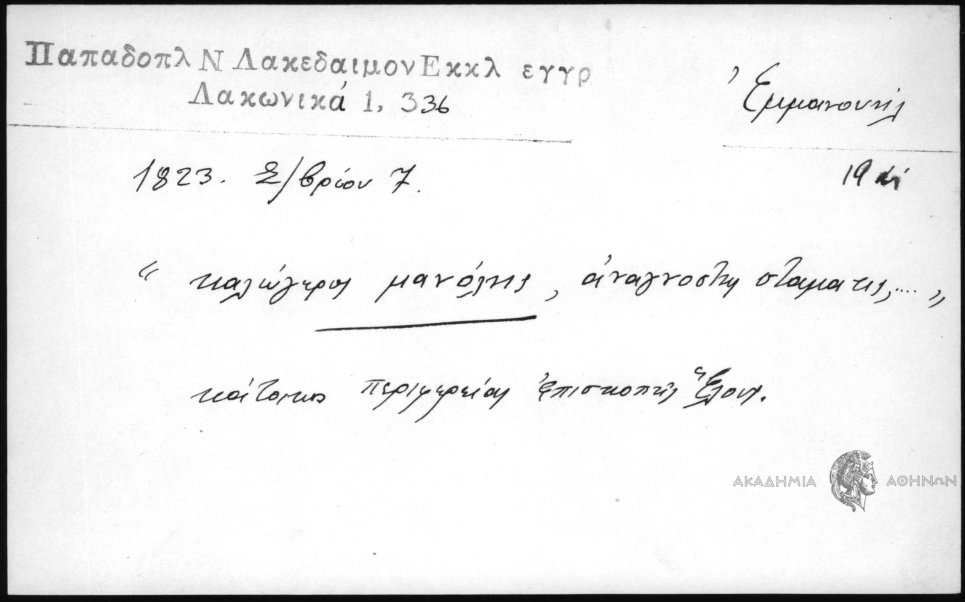 Παπαδοπλ Ν Λακεδαιμον Εκκλ εγγρ
Λακωνικά 1, 336
Ἐμμανουήλ
1823. Σ/βρίου 7.
19
“ καλώγερος μανόλης, ἀναγνοστης σταματις,.... „
κάτοικος περιφερείας ἐπισκοπῆς Ἕλους.
ΑΚΑΔΗΜΙΑ ΑΘΗΝΩΝ